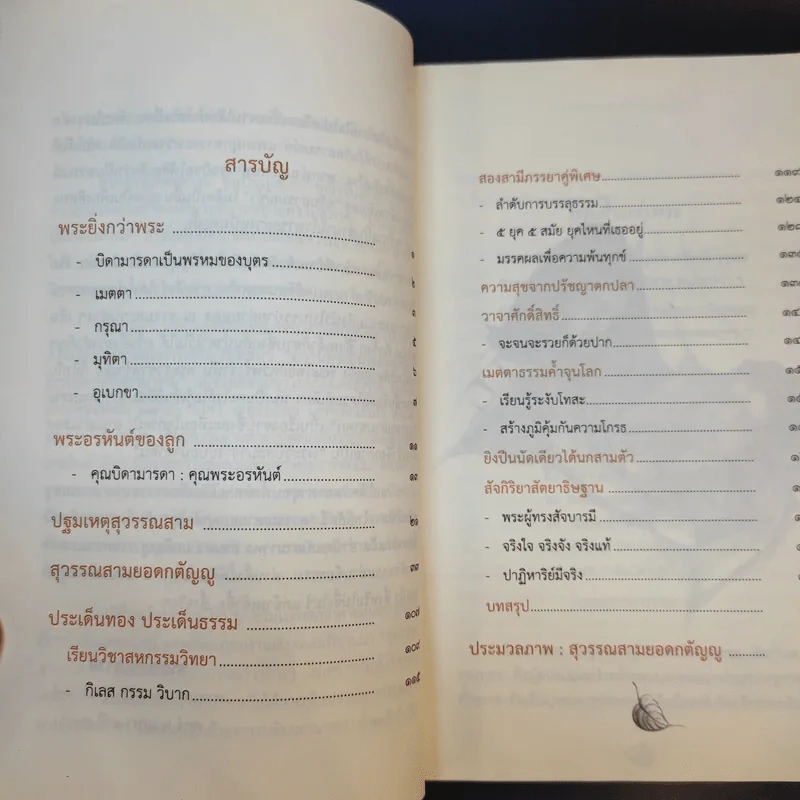 สารบัญ
พระยิ่งกว่าพระ
- บิดามารดาเป็นพรหมของบุตร ๑
- เมตตา ๒
- กรุณา ๓
- มุทิตา ๕
- อุเบกขา ๗
พระอรหันต์ของลูก ๑๑
- คุณบิดามารดา : คุณพระอรหันต์ ๑๓
ปฐมเหตุสุวรรณสาม ๒๑
สุวรรณสามยอดกตัญญู ๓๓
ประเด็นทอง ประเด็นธรรม ๑๐๗
เรียนวิชาสหกรรมวิทยา ๑๐๙
- กิเลส กรรม วิบาก ๑๑๕
สองสามีภรรยาคู่พิเศษ ๑๑๙
- ลำดับการบรรลุธรรม ๑๒๔
- ๕ ยุค ๕ สมัย ยุคไหนที่เธออยู่ ๑๒๘
- มรรคผลเพื่อความพ้นทุกข์
ความสุขจากปรัชญาตกปลา
วาจาศักดิ์สิทธิ์
- จะจนจะรวยก็ด้วยปาก
เมตตาธรรมค้ำจุนโลก
- เรียนรู้ระงับโทสะ
- สร้างภูมิคุ้มกันความโกรธ
ยิงปืนนัดเดียวได้นกสามตัว
สัจกิริยาสัตยาธิษฐาน
- พระผู้ทรงสัจบารมี
- จริงใจ จริงจัง จริงแท้
- ปาฏิหาริย์มีจริง
บทสรุป
ประมวลภาพ : สุวรรณสามยอดกตัญญู